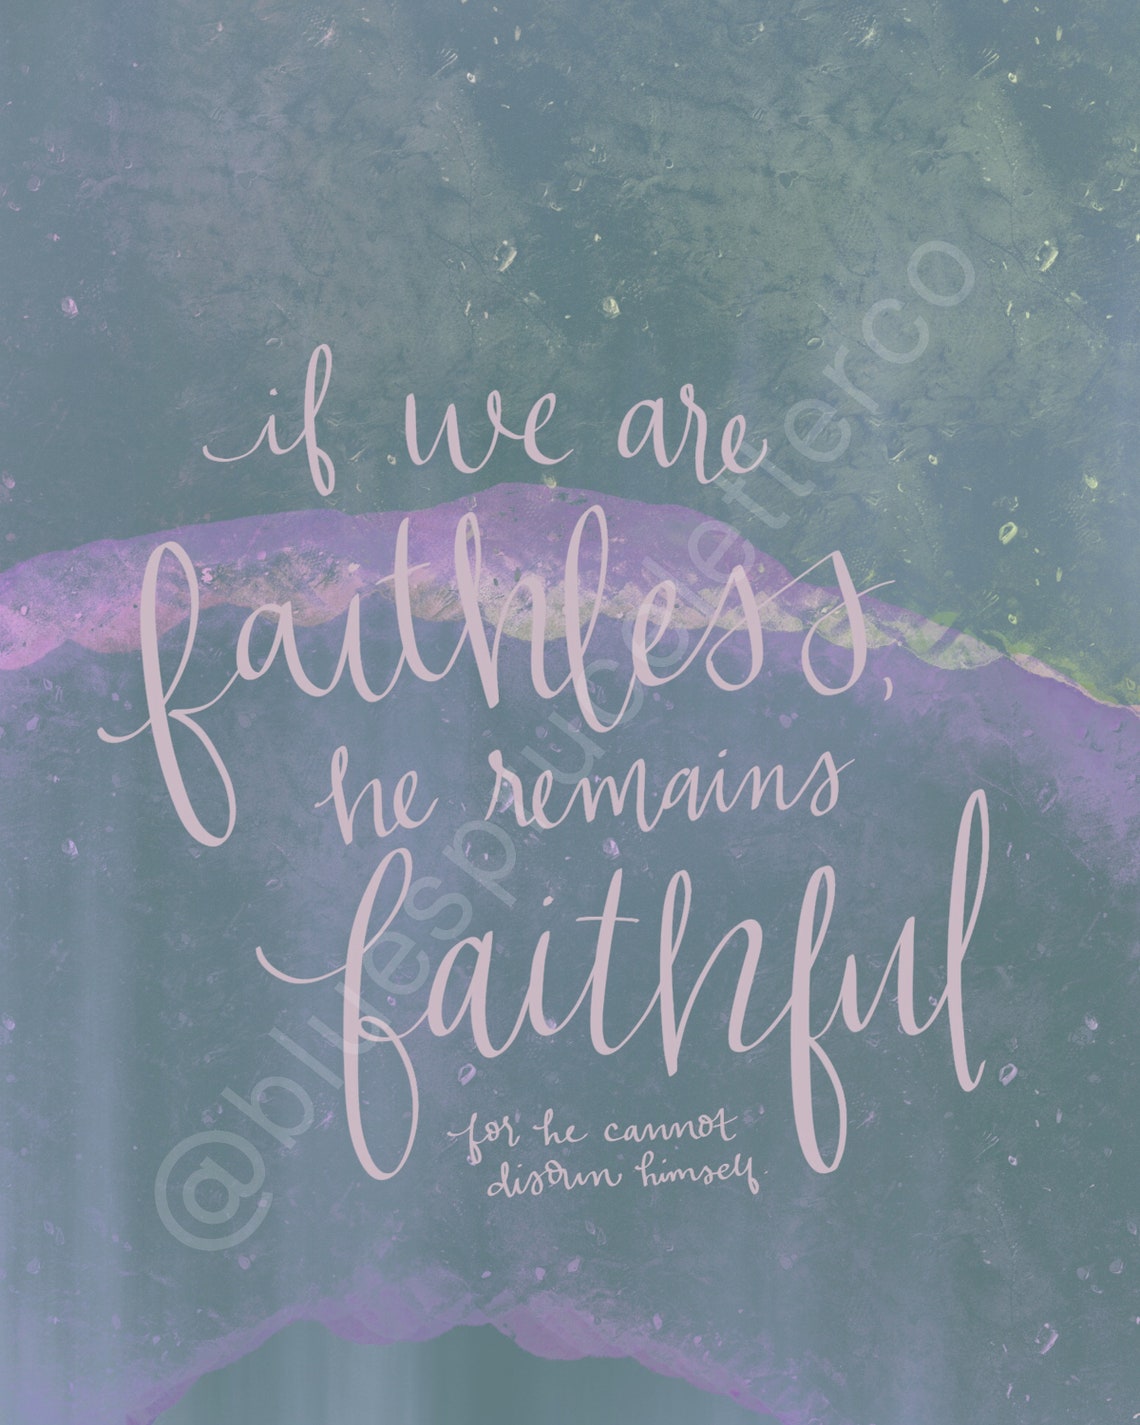 if we are
faithless,
he remains
faithful.
for he cannot
disown himself.
@bluespruceletterco